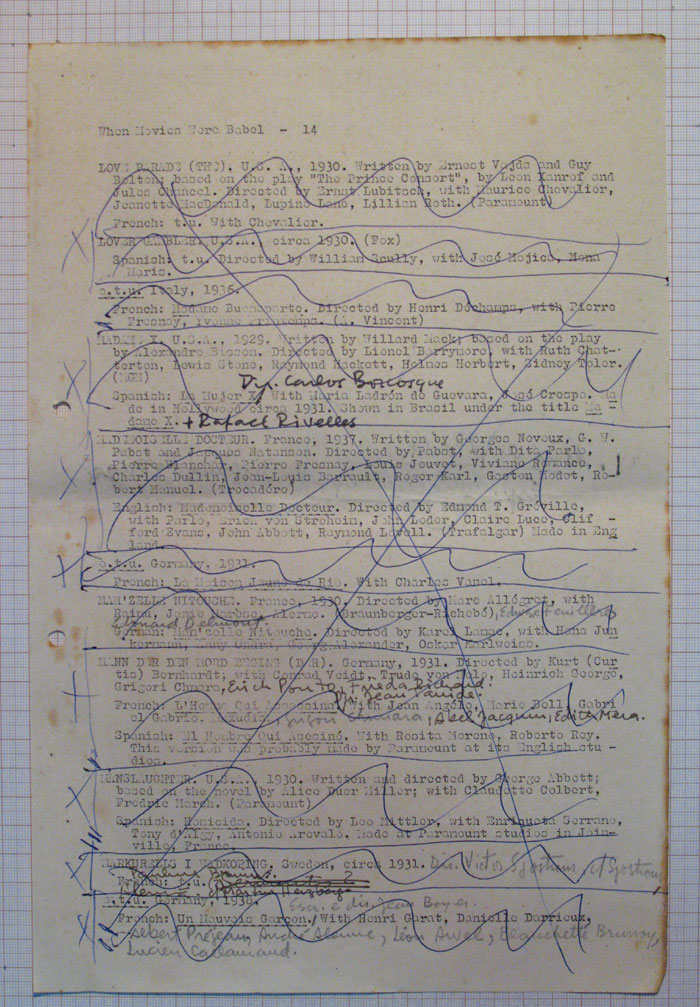 When Movies Were Babel - 14
LOVE PARADE (THE). U.S.A., 1930. Written by Ernest Vajda and Guy
Bolton; based on the play "The Prince Consort", by Leon Xanrof and
Jules Chancel. Directed by Ernst Lubitsch, with Maurice Chevalier,
Jeanette MacDonald, Lupino Lane, Lillian Roth. (Paramount)
French: t.u. With Chevalier.
LOVER GAMBLER. U.S.A., circa 1930. (Fox)
Spanish: t.u. Directed by William Scully, with José Mojica, Mona
Maris.
o.t.u. Italy, 1936.
French: Madame Buonaparte. Directed by Henri Dechamps, with Pierre
Fresnay, Yvonne Printemps. (A. Vincent)
MADAME X. U.S.A., 1929. Written by Willard Mack; based on the play
by Alexandre Bisson. Directed by Lionel Barrymore, with Ruth Chat-
terton, Lewis Stone, Raymond Hackett, Holmes Herbert, Sidney Toler.
(MGM) Dir. Carlos Borcosque
Spanish: La Mujer X. With Maria Ladrón de Guevara, José Crespo. Ma
de in Hollywood circa 1931. Shown in Brasil under the title Ma -
dame X. + Rafael Rivelles
MADEMOISELLE DOCTEUR. France, 1937. Written by Georges Neveux, G. W.
Pabst and Jacques Natanson. Directed by Pabst, with Dita Parlo,
Pierre Blanchar, Pierre Fresnay, Louis Jouvet, Viviane Romance,
Charles Dullin, Jean-Louis Barrault, Roger Karl, Gaston Modot, Ro-
bert Manuel. (Trocadéro)
English: Mademoiselle Docteur. Directed by Edmond T. Gréville,
with Parlo, Erich von Stroheim, John Loder, Claire Luce, Clif -
ford Evans, John Abbott, Raymond Lovell. (Trafalgar) Made in Eng
land.
o.t.u. Germany, 1931.
French: La Maison Jaune de Rio. With Charles Vanel.
MAM'ZELLE NITOUCHE. France, 1930. Directed by Marc Allégret, with
Raimu, Janie Marèse, Alerme. (Braunberger-Richebé), Edwige Feuillère
Edouard Delmont
German: Mam'zelle Nitouche. Directed by Karel Lamac, with Hans Jun
kermann, Anny Ondra, Georg Alexander, Oskar Karlweiss.
MANN DER DEN MORD BEGING (DER). Germany, 1931. Directed by Kurt (Cur
tis) Bernhardt; with Conrad Veidt, Trude von Molo, Heinrich George,
Grigori Chmara, Erich Ponto, Frieda Richard.
Dir. Jean Tarride.
French: L'Homme Qui Assassina. With Jean Angelo, Marie Bell, Gabri
el Gabrio. Chmara, Abel Jacquin, Edith Mera.
Spanish: El Hombre Que Asesinó. With Rosita Moreno, Roberto Rey.
This version was probably made by Paramount at its English stu -
dios.
MANSLAUGHTER. U.S.A., 1930. Written and directed by George Abbott;
based on the novel by Alice Duer Miller; with Claudette Colbert,
Fredric March. (Paramount)
Spanish: Homicida. Directed by Leo Mittler, with Enriqueta Serrano,
Tony d'Algy, Antonio Arevalo. Made at Paramount studios in Join-
ville, France.
MARKURELLS I WADKÖPING. Sweden, circa 1931. Dir. Victor Sjöström, c/ Sjöström,
Pauline Brunius.
French: t.u.
o.t.u. Germany, 1936. Esc. e dir. Jean Boyer.
French: Un Mauvais Garçon. With Henri Garat, Danielle Darrieux,
Albert Préjean, André Alerme, Léon Arvel, Blanchette Brunoy,
Lucien Callamand.